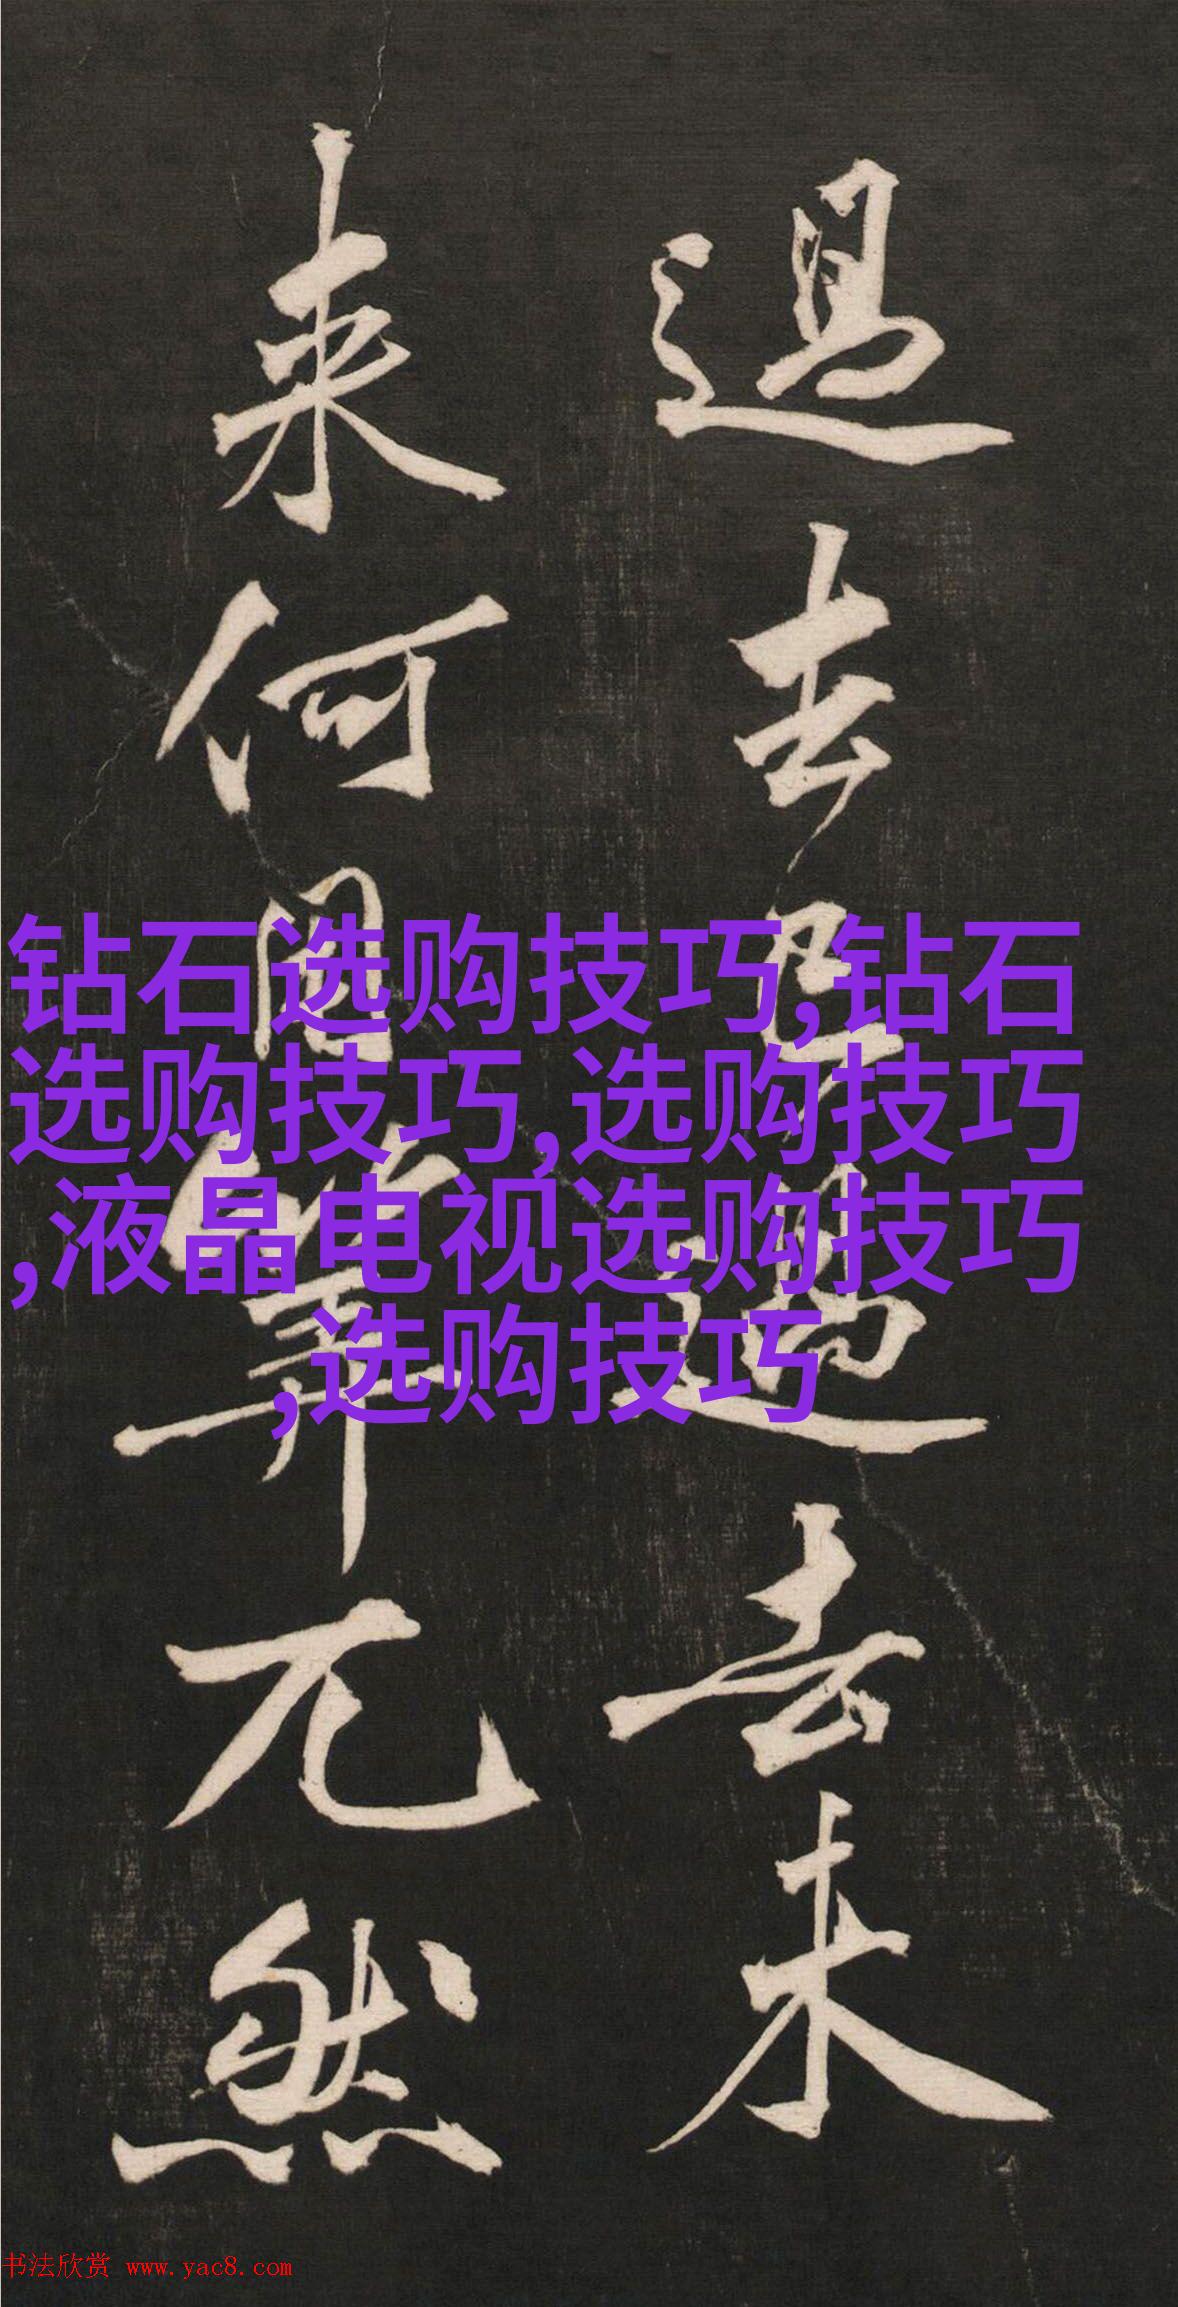 過去已過去未
来何算兀然
钻石选购技巧,钻石
选购技巧,选购技巧
,液晶电视选购技巧
,选购技巧
书法欣赏 www.yac8.com